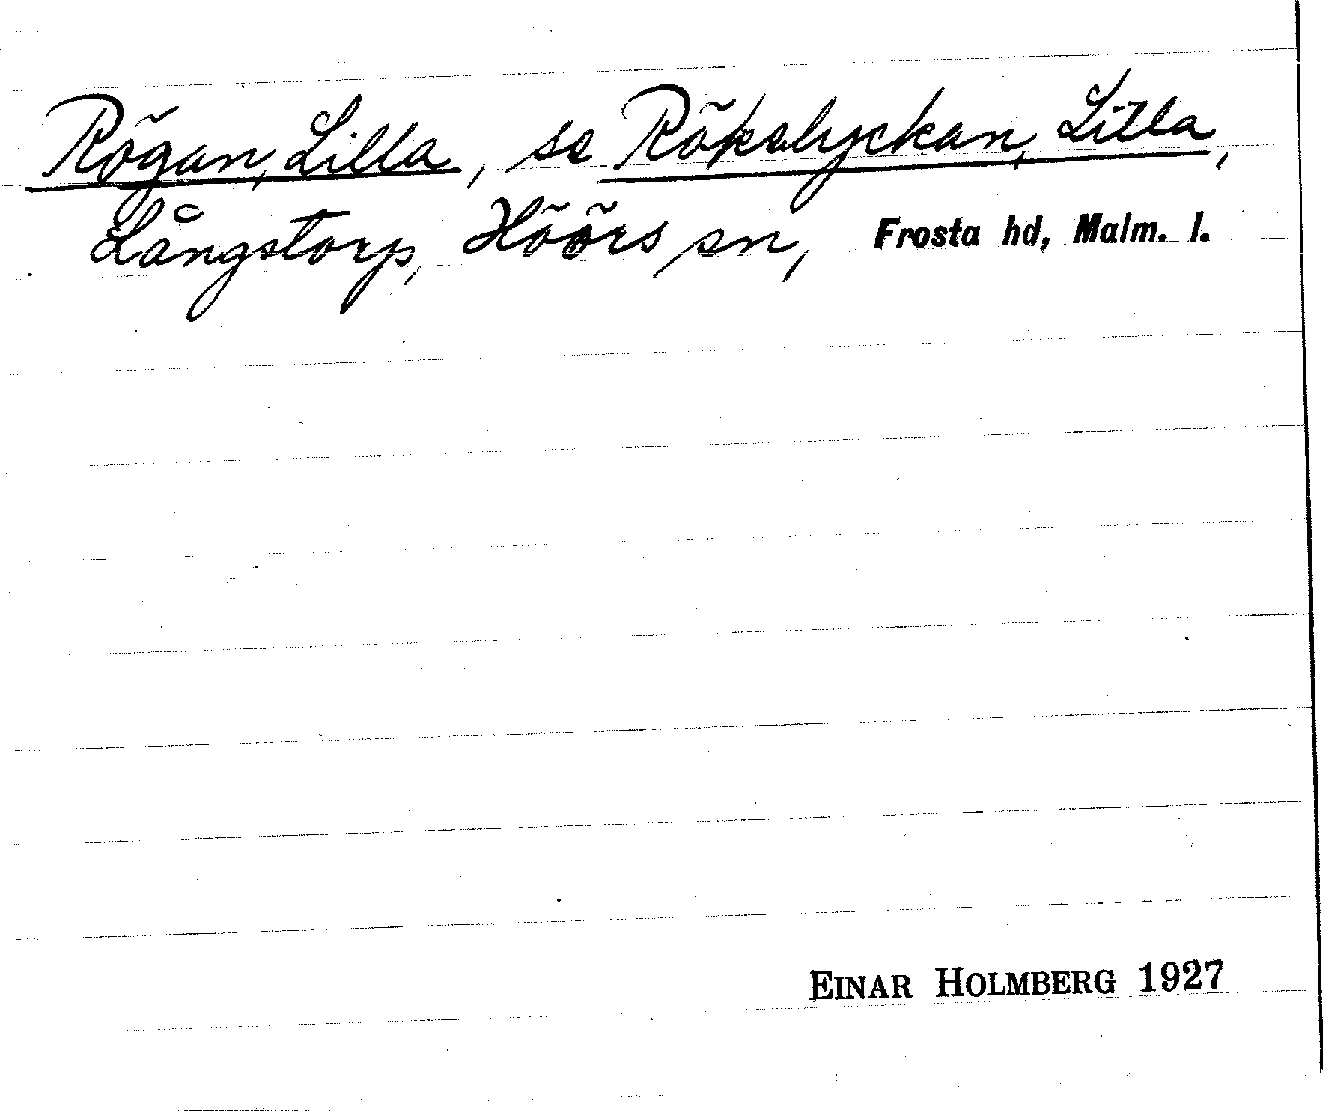 Rögan, Lilla, se Rökslyckan, Lilla,
Långstorp, Höörs sn, Frosta hd, Malm. l.
EINAR HOLMBERG 1927